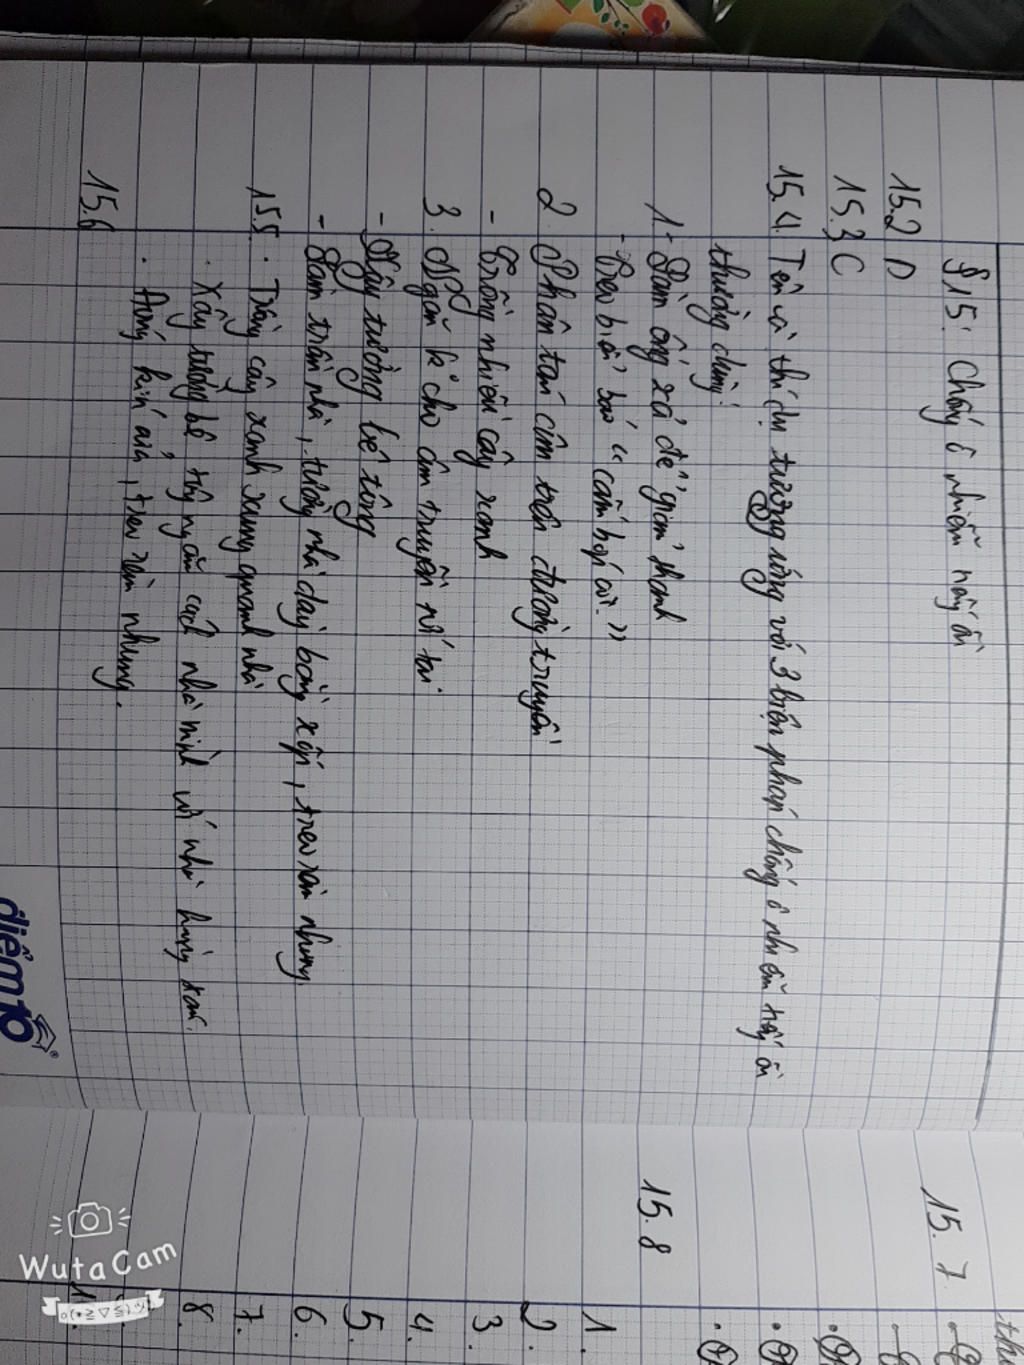 §15: Chống ô nhiễm tiếng ồn
15.2 D
15.3 C
15.4. Tên và thí dụ tương ứng với 3 biện pháp chống ô nhiễm tiếng ồn
thường dùng:
1.
- Treo biển báo "cấm bóp còi."
2. Phân tán âm trên đường truyền
- Trồng nhiều cây xanh
3. Ngăn k cho âm truyền tới tai.
- Xây tường bê tông
- Làm trần nhà, tường nhà dày bằng xốp, treo rèm nhung.
15.5. · Trồng cây xanh xung quanh nhà
· Xây tường bê tông ngăn cách nhà mình với nhà hàng xóm.
· Đóng kín cửa, treo rèm nhung.
15.6
15.7
15.8
1.
2.
3.
4.
5.
6.
7.
8.
điểm10
WutaCam